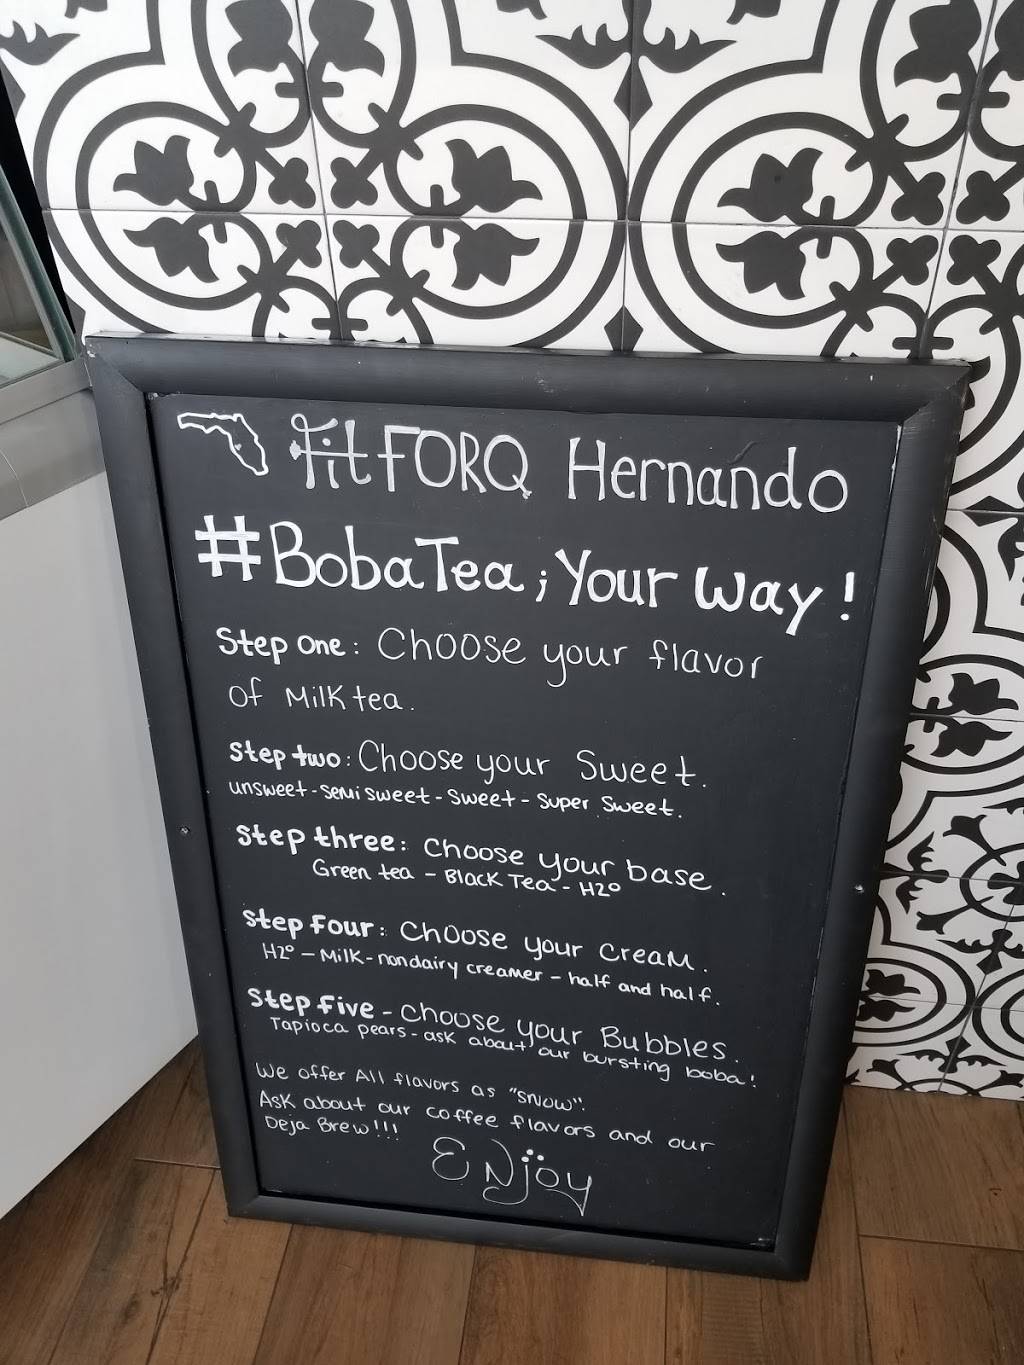 FitFORQ Hernando
#BobaTea; Your way!
Step One: Choose your flavor
of Milk tea.
Step two: Choose your Sweet.
unsweet - semi sweet - sweet - super sweet.
Step three: Choose your base.
Green tea - Black Tea - H2O
Step Four: Choose your Cream.
H2O - Milk - nondairy creamer - half and half.
Step Five - Choose your Bubbles.
Tapioca pears - ask about our bursting boba!
We offer All flavors as "snow".
Ask about our coffee flavors and our
Deja Brew!!!
ENjoy